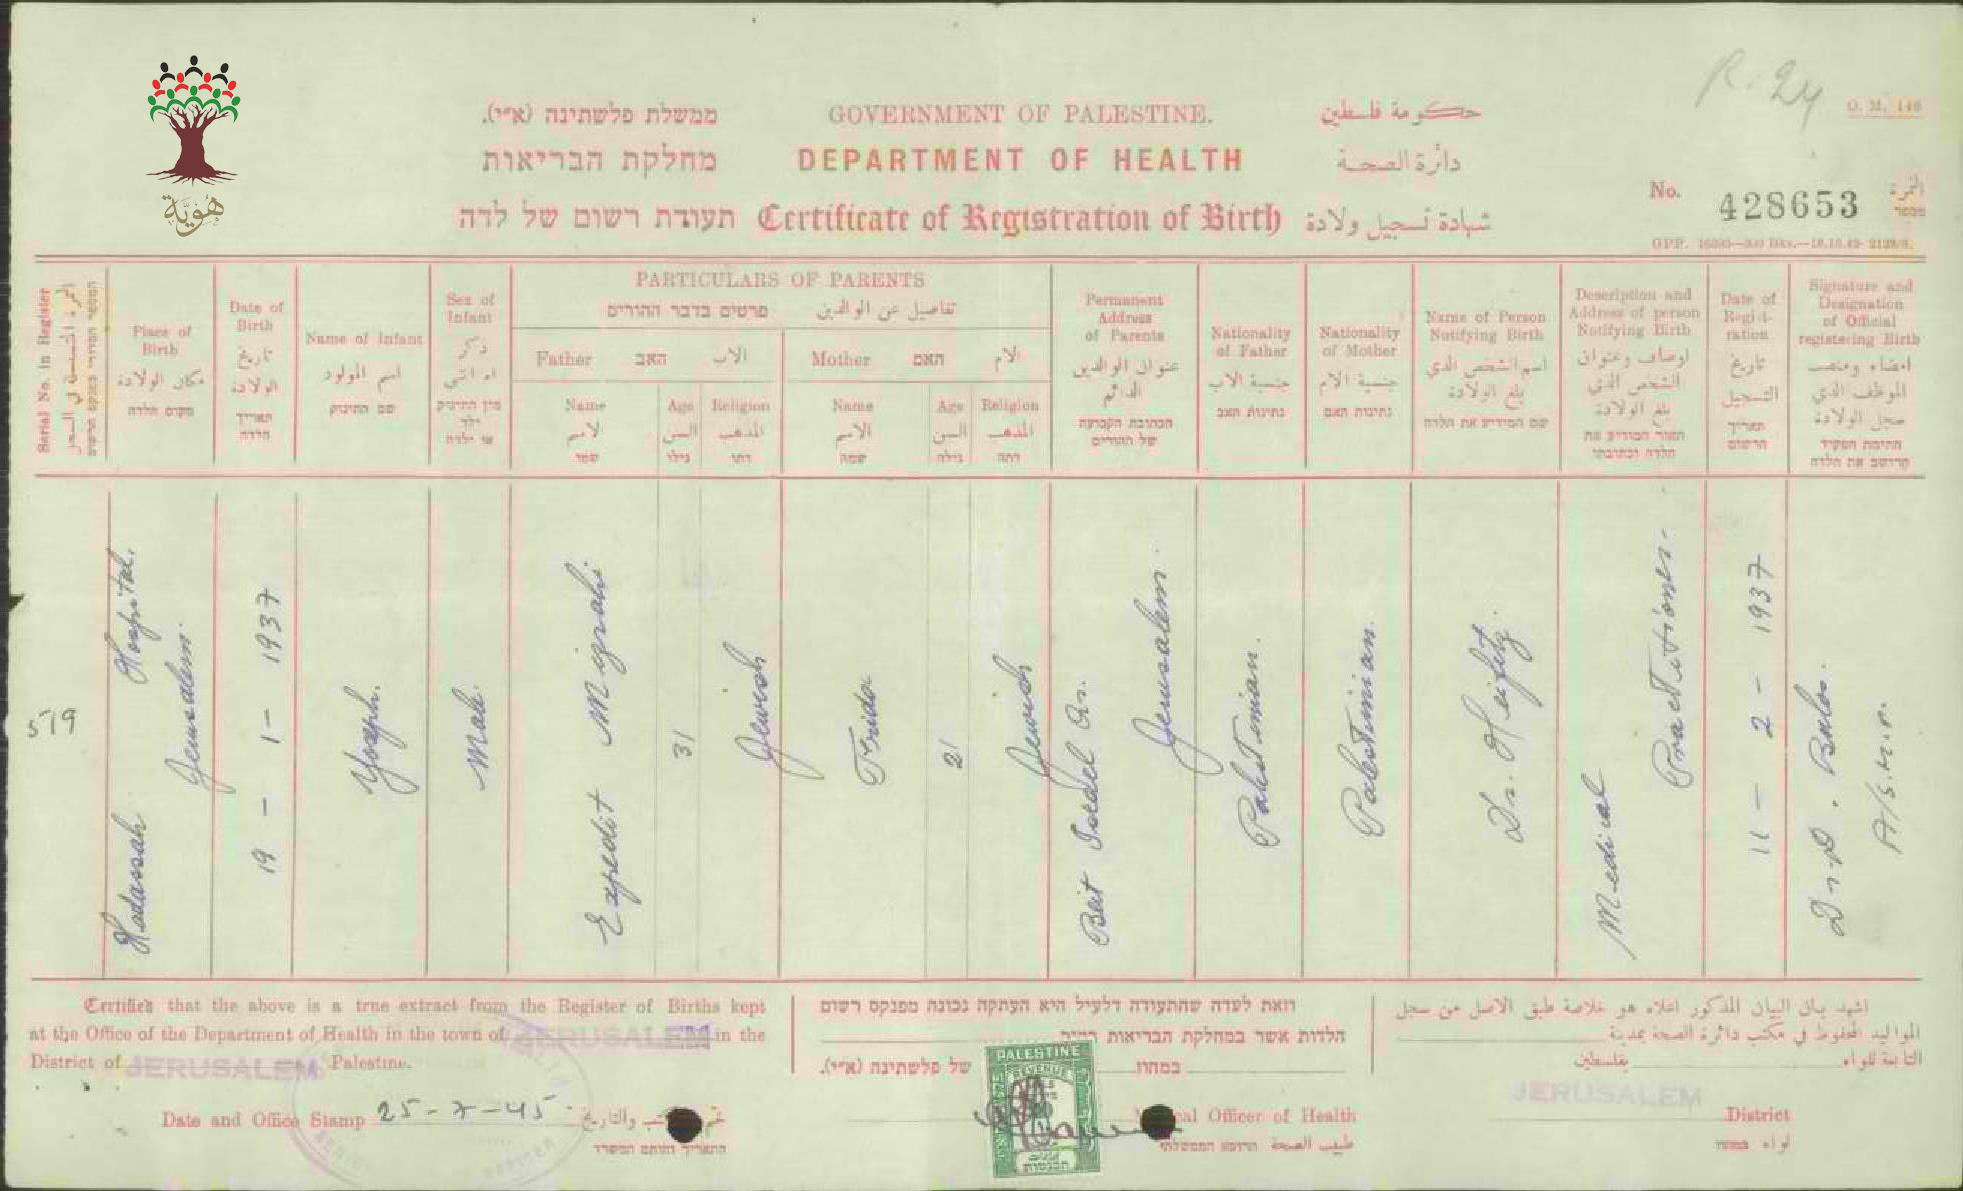 هُوِيَّة
R. 24
O. M. 146
ממשלת פלשתינה (א״י). GOVERNMENT OF PALESTINE. حكومة فلسطين
מחלקת הבריאות DEPARTMENT OF HEALTH دائرة الصحة
No. 428653 النمرة מספר
תעודת רשום של לדה Certificate of Registration of Birth شهادة تسجيل ولادة
PARTICULARS OF PARENTS
פרטים בדבר ההורים تفاصيل عن الوالدين
Serial No. in Register
Place of Birth مكان الولادة מקום הלדה
Date of Birth تاريخ الولادة תאריך הלדה
Name of Infant اسم المولود שם התינוק
Sex of Infant ذكر او انثى מין התינוק ילד או ילדה
Father האב الاب
Name الاسم שמו
Age السن גילו
Religion المذهب דתו
Mother האם الام
Name الاسم שמה
Age السن גילה
Religion المذهب דתה
Permanent Address of Parents عنوان الوالدين الدائم הכתובת הקבועה של ההורים
Nationality of Father جنسية الاب נתינות האב
Nationality of Mother جنسية الام נתינות האם
Name of Person Notifying Birth اسم الشخص الذي بلغ الولادة שם המודיע את הלדה
Description and Address of person Notifying Birth اوصاف وعنوان الشخص الذي بلغ الولادة תאור המודיע את הלדה וכתובתו
Date of Regist-ration تاريخ التسجيل תאריך הרשום
Signature and Designation of Official registering Birth امضاء ومنصب الموظف الذي سجل الولادة חתימת הפקיד הרושם את הלדה
519
Hadassah Hospital.
Jerusalem.
19 - 1 - 1937
Yoseph.
Male.
Expedit Mizrahi
31
Jewish
Frida
21
Jewish
Beit Israel Qr.
Jerusalem.
Palestinian.
Palestinian.
Dr. Heifetz.
Medical
Practitioner.
11 - 2 - 1937
Certified that the above is a true extract from the Register of Births kept
at the Office of the Department of Health in the town of JERUSALEM in the
District of JERUSALEM Palestine.
Date and Office Stamp 25-7-45
התאריך וחותם המשרד
וזאת לעדה שהתעודה דלעיל היא העתקה נכונה מפנקס רשום
הלדות אשר במחלקת הבריאות
במחוז של פלשתינה (א״י).
PALESTINE
REVENUE
הכנסות
Officer of Health
طبيب الصحة הרופא הממשלתי
اشهد بان البيان المذكور اعلاه هو خلاصة طبق الاصل من سجل
المواليد المحفوظ في مكتب دائرة الصحة بمدينة
التابعة للواء بفلسطين
JERUSALEM
District
لواء במחוז